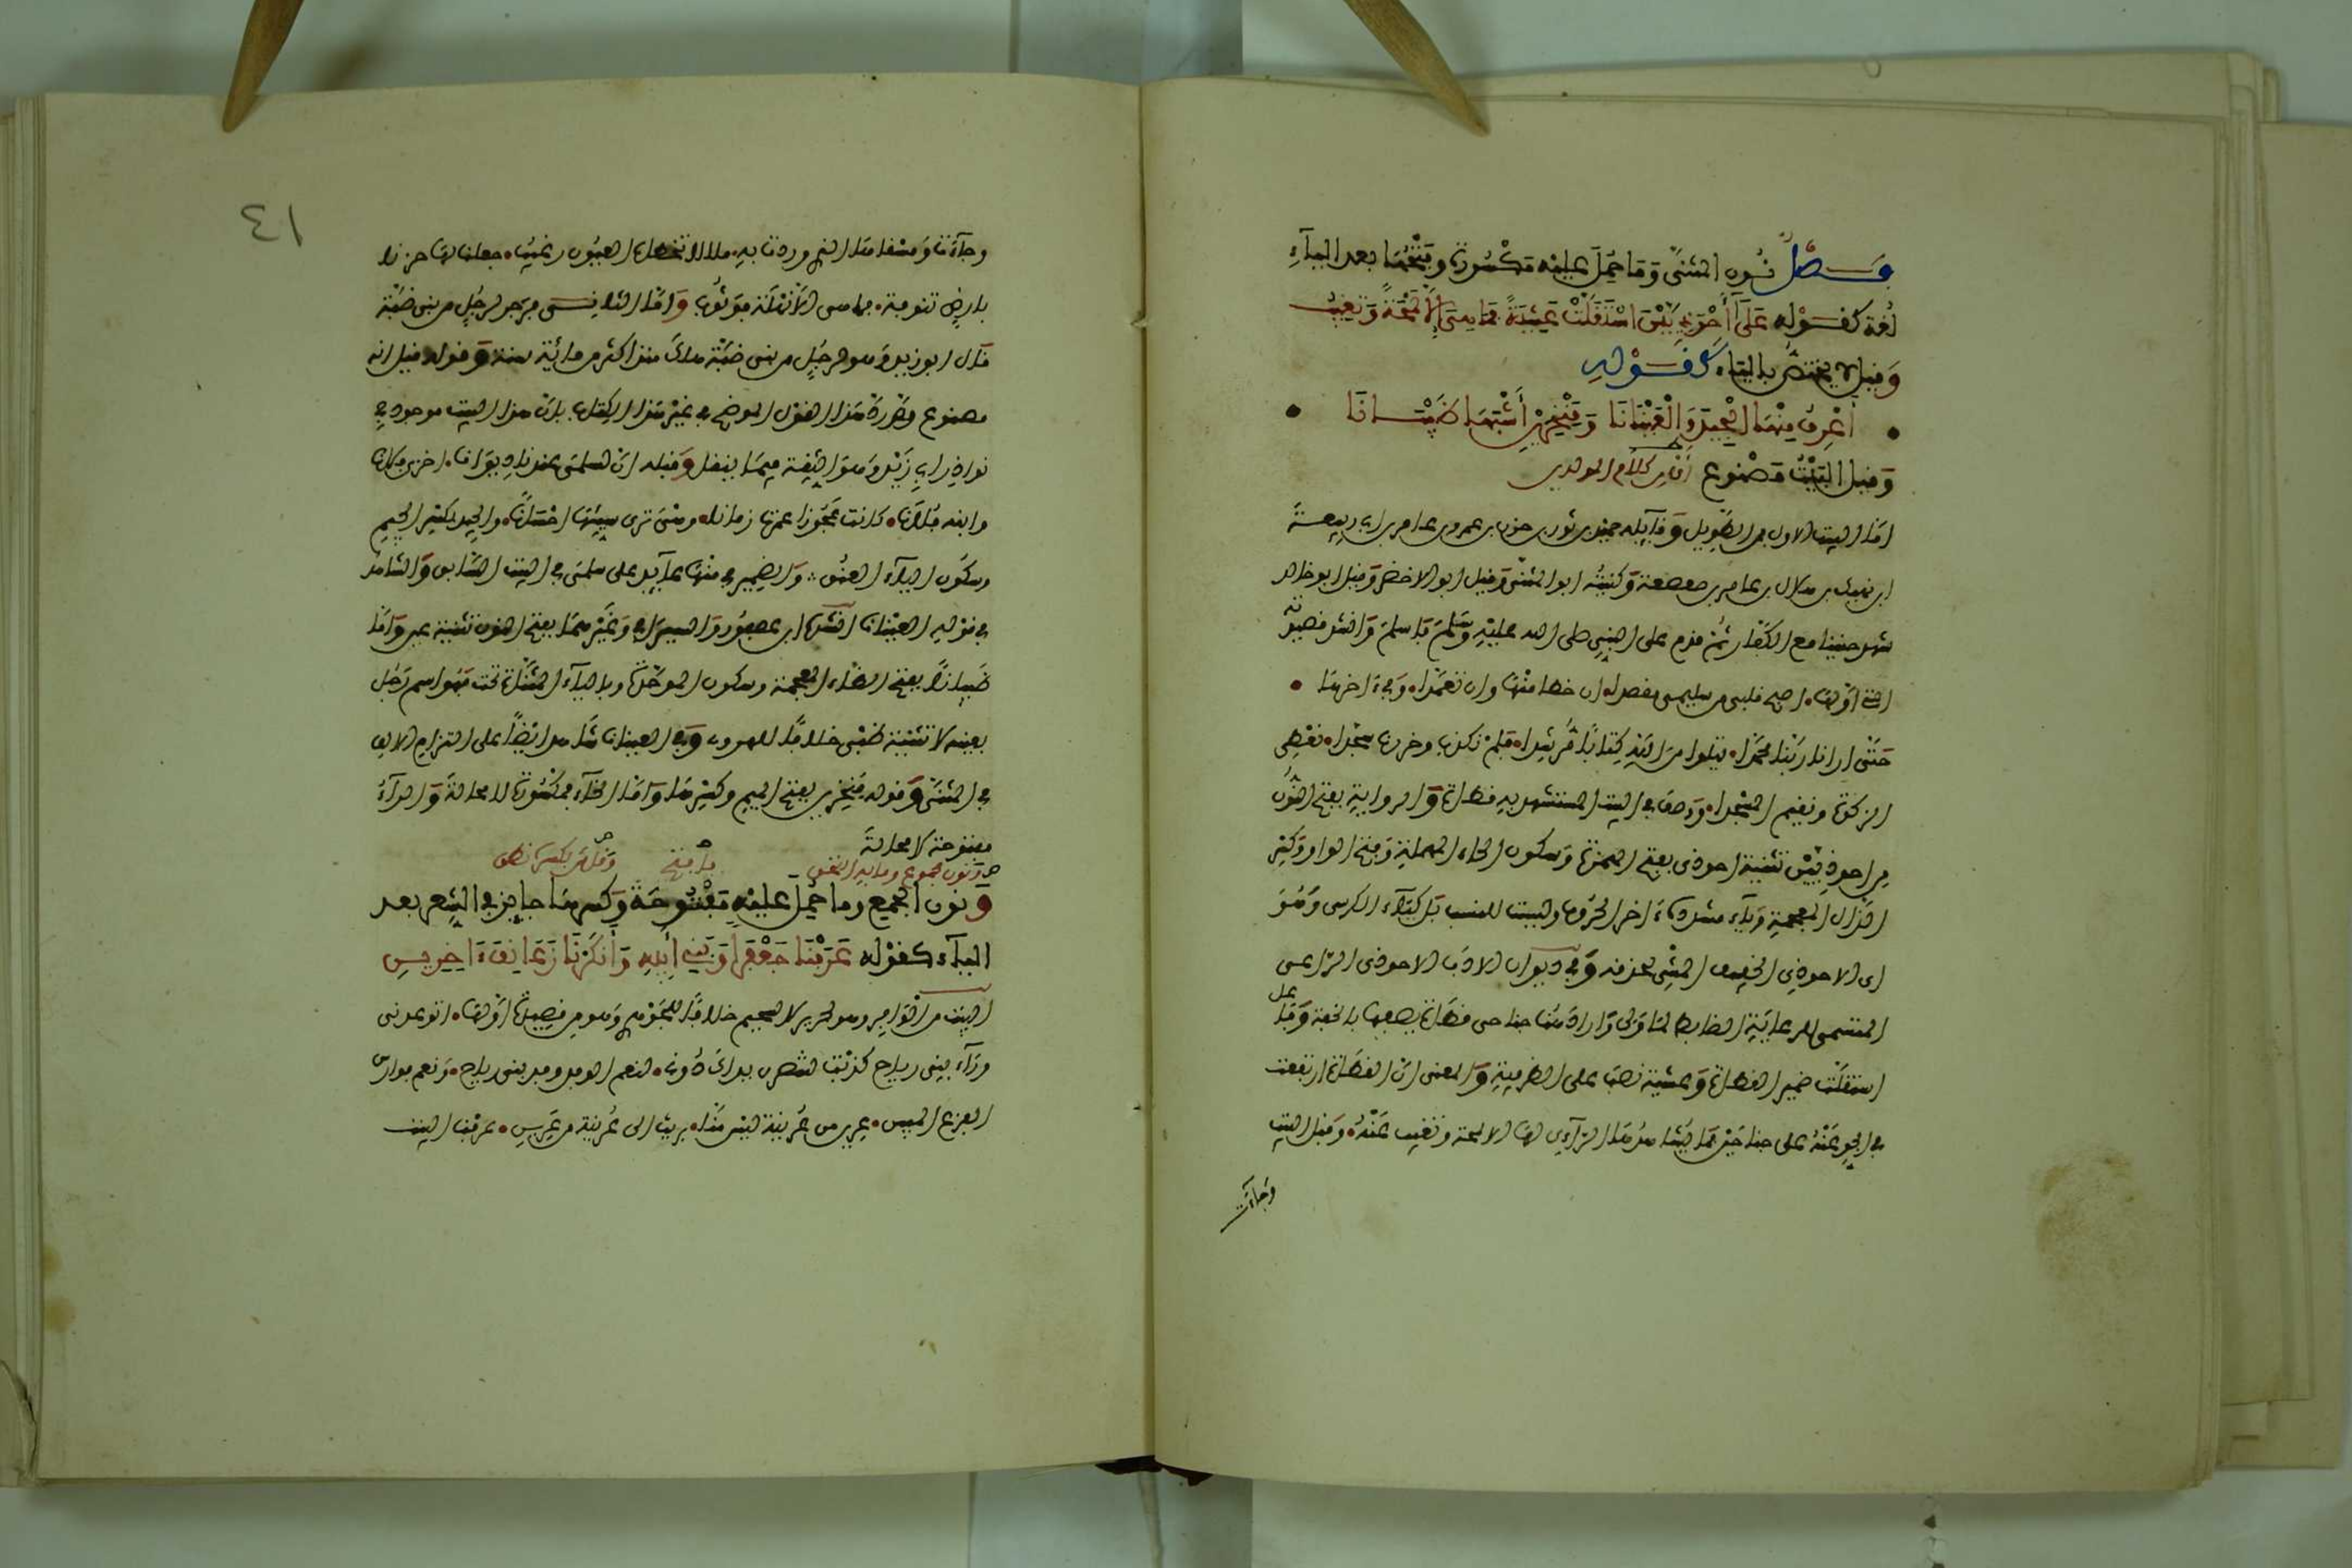 فصل نون المثنى وما حمل عليه مكسورة وفتحها بعد الياء
لغة كقوله على أحوذيين استقلت عشية فما هي إلا لمحة وتغيب
وقيل لا يختص بالياء كقوله
أعرف منها الجيد والعينانا ومنخرين أشبها ظبيانا
وقيل البيت مصنوع أي من كلام المولدين
اما البيت الاول فمن الطويل وقايله حميد بن ثور بن حزن بن عمرو بن عامر بن ابي ربيعة
ابن نهيك بن هلال بن عامر بن صعصعة وكنيته ابو المثنى وقيل ابو الاخضر وقيل ابو خالد
شهد حنينا مع الكفار ثم قدم على النبي صلى الله عليه وسلم فاسلم وانشد قصيدته
التي اولها اصبح قلبي من سليمى مقصدا ان خطا منها وان تعمدا وفي اخرها
حتى ارانا ربنا محمدا يتلوا من الله كتابا مرشدا فلم نكذب وخررنا سجدا نعطي
الزكوة ونقيم المسجدا وصف في البيت المستشهد به قطاة والرواية بفتح النون
من احوذيين تثنية احوذي بفتح الهمزة وسكون الحاء المهملة وفتح الواو وكسر
الذال المعجمة وياء مشددة اخر الحروف وليست للنسب بل كياء الكرسي وهو
اي الاحوذي الخفيف المشي لحذقه وفي ديوان الادب الاحوذي الراعي
المتشمر للرعاية الضابط لما ولي واراد هنا جناحي قطاة يصفها بالخفة وفاعل
استقلت ضمير القطاة وعشية نصب على الظرفية والمعنى ان القطاة ارتفعت
في الجو عشية على جناحين فما يشاهدها الراءي لها الا لمحة وتغيب عنه وقبل البيت
وجاءت
٤١
وجاءت ومسقاها الذي وردت به
بارض تنومة واما الثاني فمن رجز لرجل من بني ضبة
قال ابو زيد وهو لرجل من بني ضبة هلك منذ اكثر من مائة سنة وقوله قيل انه
مصنوع هذا القول الموضح في غير هذا الكتاب بان هذا البيت موجود في
نوادر ابي زيد وهو الثقة فيما ينقل وقبله ان لسلمى عندنا ديوانا اخزى فلانا
وابنه فلانا كانت عجوزا عمرت زمانا وهي ترى سيئها احسانا والجيد بكسر الجيم
وسكون الياء العنق والضمير في منها عايد على سلمى في البيت السابق والشاهد
في قوله العينانا انشده ابن عصفور والسيرافي وغيرهما بفتح النون تثنية عين واما
ظبيانا بفتح الظاء المعجمة وسكون الموحدة وبالياء المثناة تحت فهو اسم رجل
بعينه لا تثنية ظبي خلافا للهروي وفي العينان شاهد ايضا على التزام الالف
في المثنى وقوله منخرين بفتح الميم وكسرها واما الخاء فمكسورة لا محالة والراء
مفتوحة لا محالة
ونون مجموع وما به التحق بافتح وقل من بكسره نطق
ونون الجمع وما حمل عليه مفتوحة وكسرها جايز في الشعر بعد
الياء كقوله عرفنا جعفرا وبني أبيه وأنكرنا زعانف ءاخرين
البيت من الوافر وهو لجرير لا لسحيم خلافا للجوهري وهو من قصيدة اولها اتوعدني
وراء بني رياح كذبت لتقصرن يداك دوني لنعم الوفد وفد بني رياح ونعم فوارس
الفزع اليقين عرين من عرينة ليس منا برئت الى عرينة من عرين عرفنا البيت